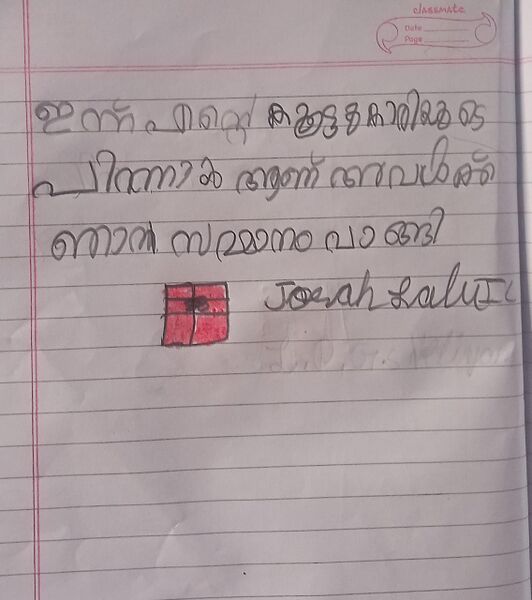 classmate
Date
Page
ഇന്ന് എന്റെ കൂട്ടുകാരിയുടെ
പിറന്നാൾ ആണ് അവൾക്ക്
ഞാൻ സമ്മാനം വാങ്ങി